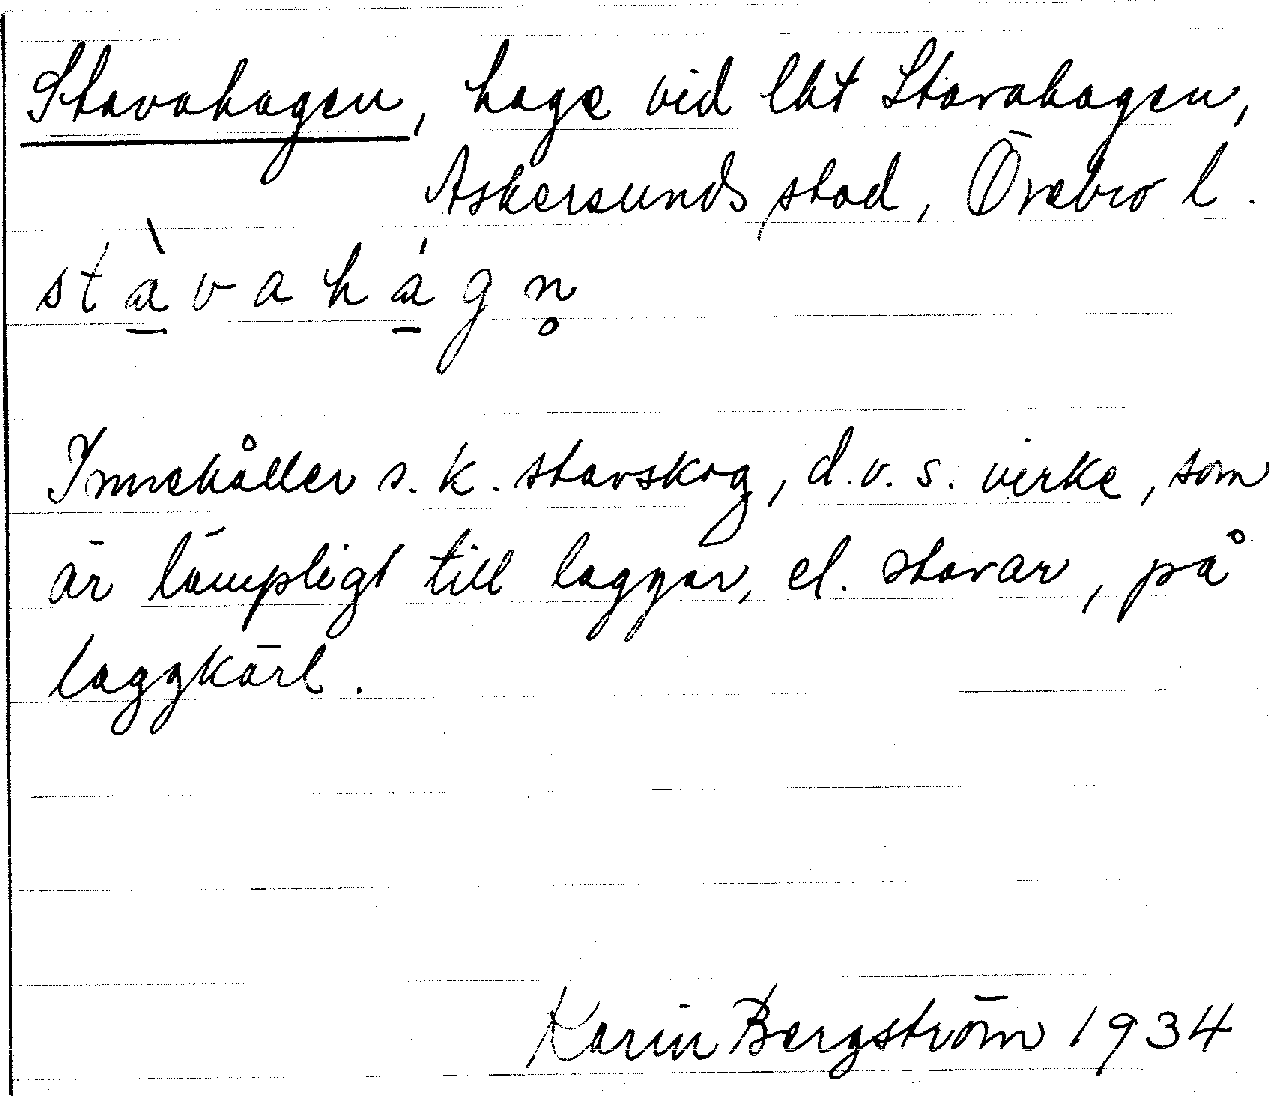 Stavahagen, hage vid lht Stavahagen,
Askersunds stad, Örebro l.
stàvahágn̥
Innehåller s.k. stavskog, d.v.s. virke, som
är lämpligt till laggar, el. stavar, på
laggkärl.
Karin Bergström 1934